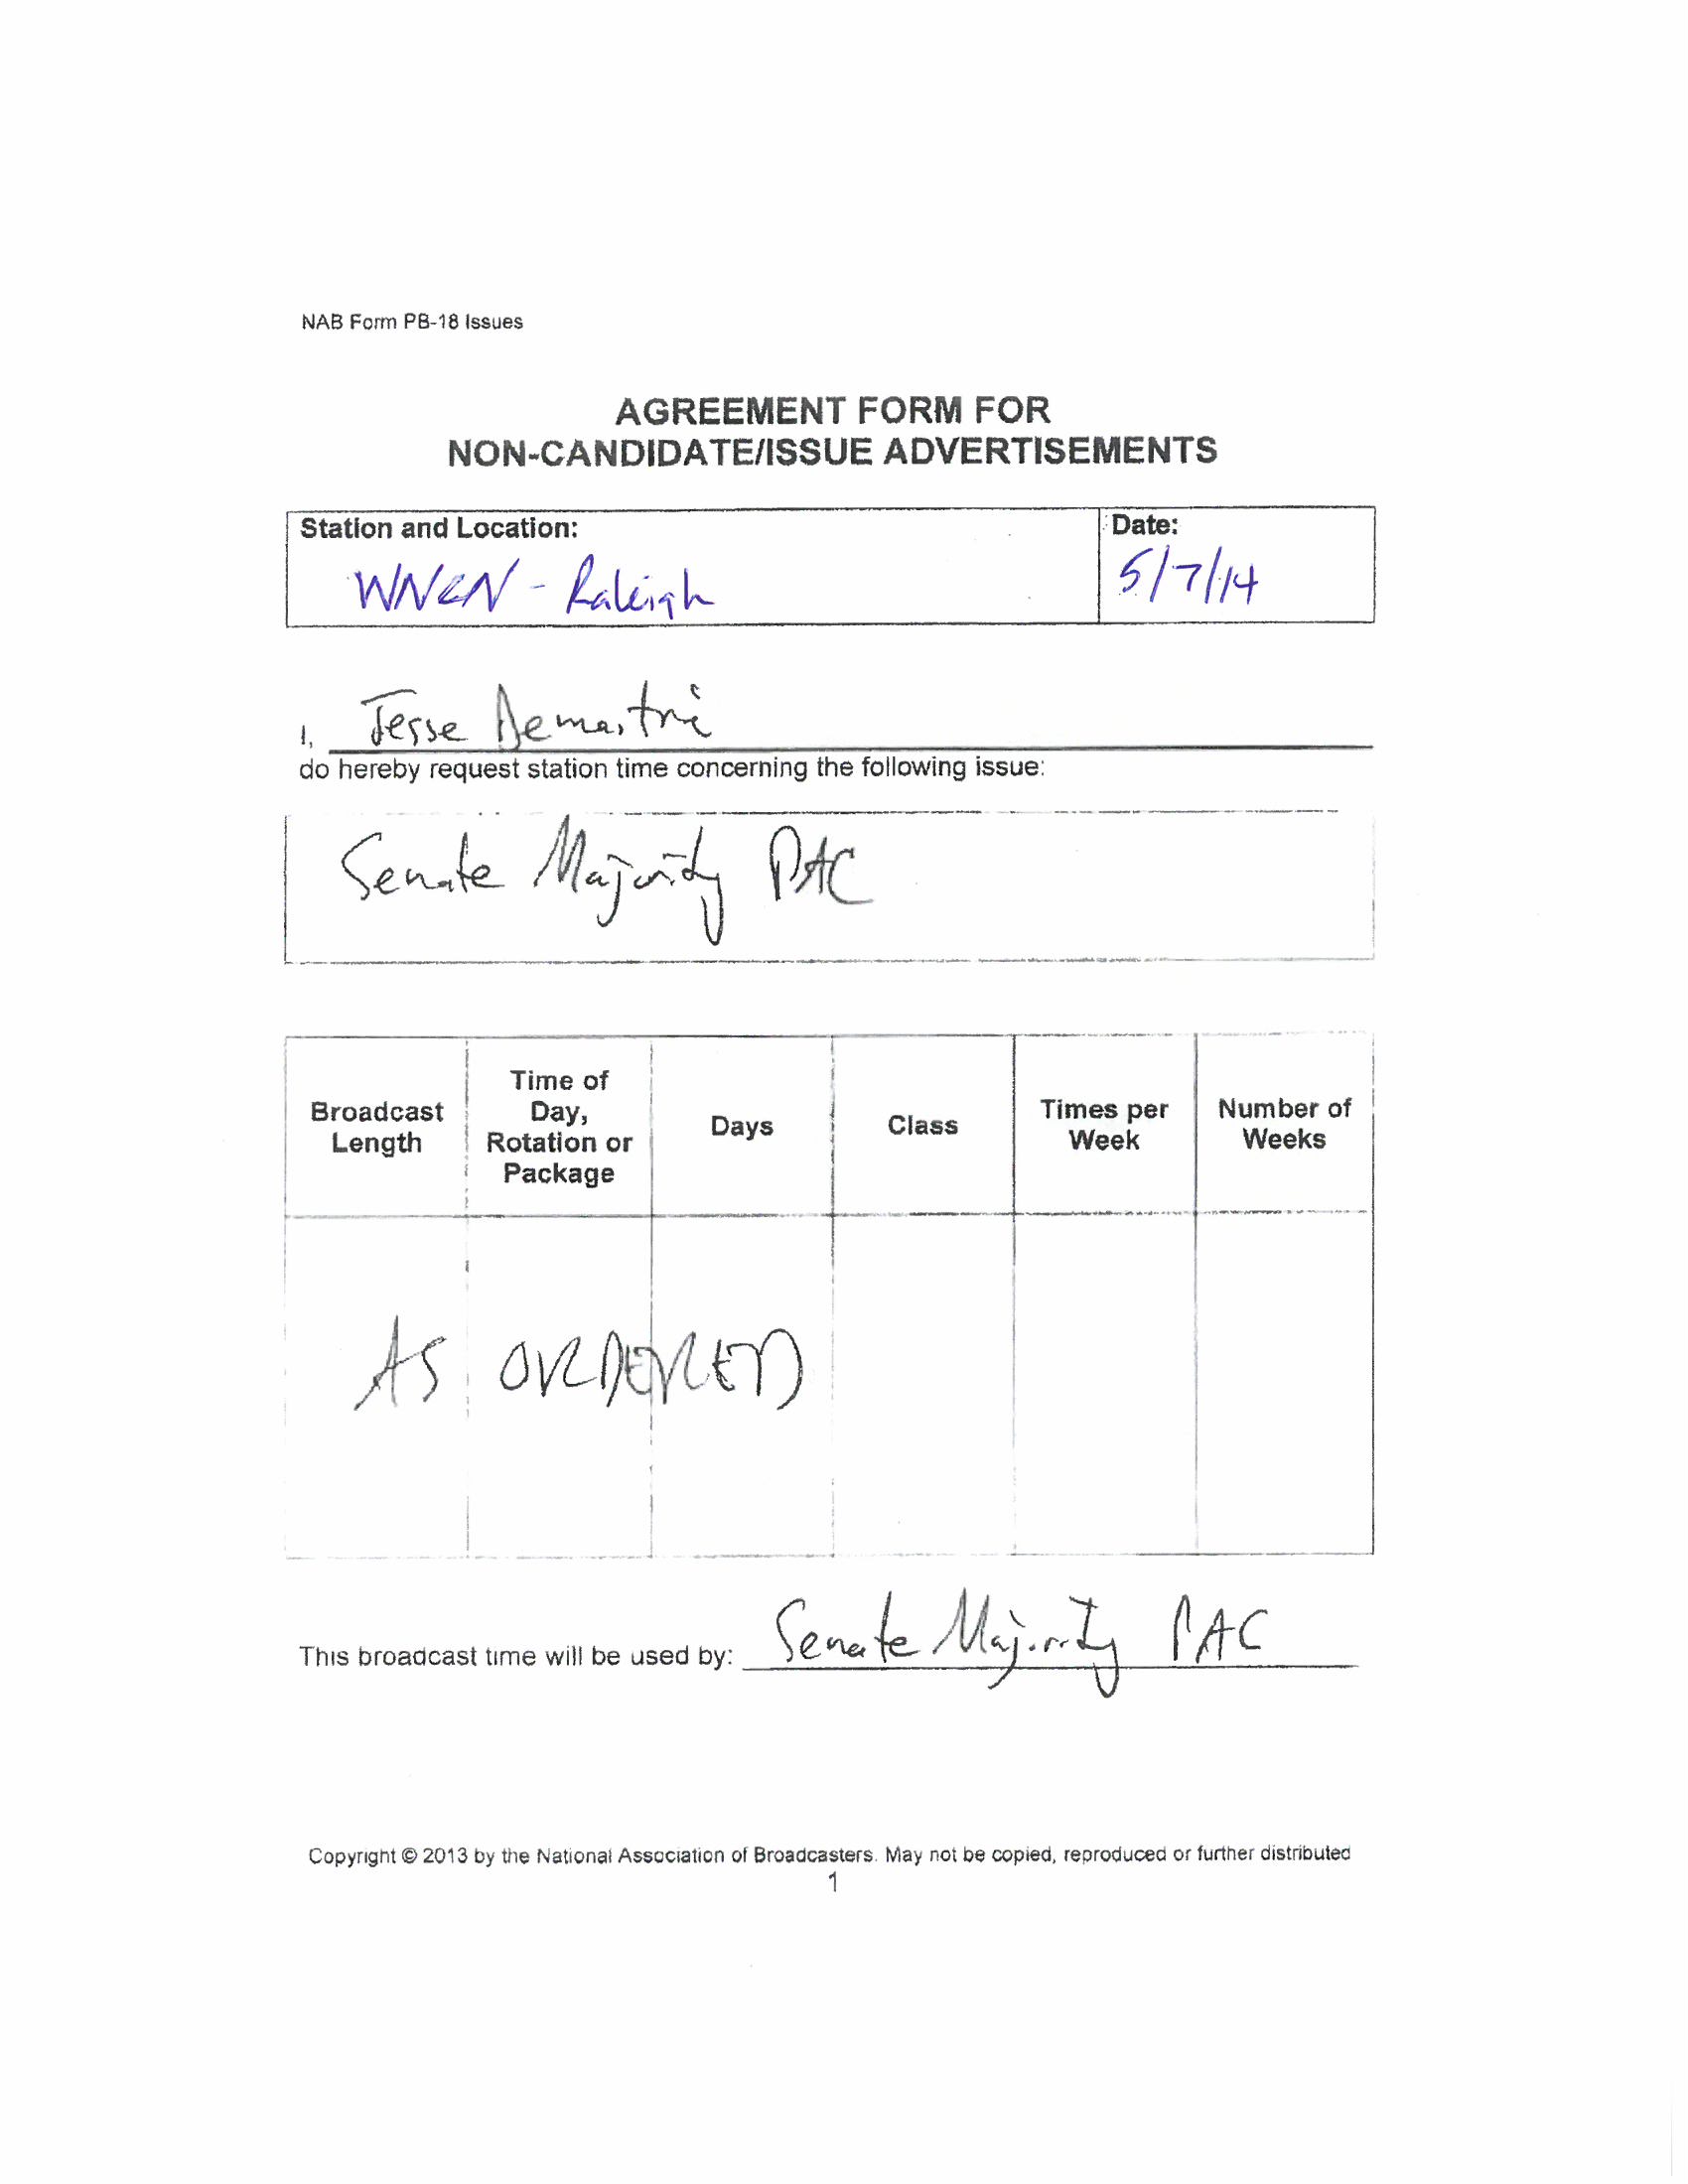 NAB Form PB-18 Issues
AGREEMENT FORM FOR
NON-CANDIDATE/ISSUE ADVERTISEMENTS
Station and Location:
Date:
WNCN - Raleigh
5/7/14
I, Jesse Demastrie
do hereby request station time concerning the following issue:
Senate Majority PAC
Broadcast Length
Time of Day, Rotation or Package
Days
Class
Times per Week
Number of Weeks
AS ORDERED
This broadcast time will be used by: Senate Majority PAC
Copyright © 2013 by the National Association of Broadcasters. May not be copied, reproduced or further distributed
1